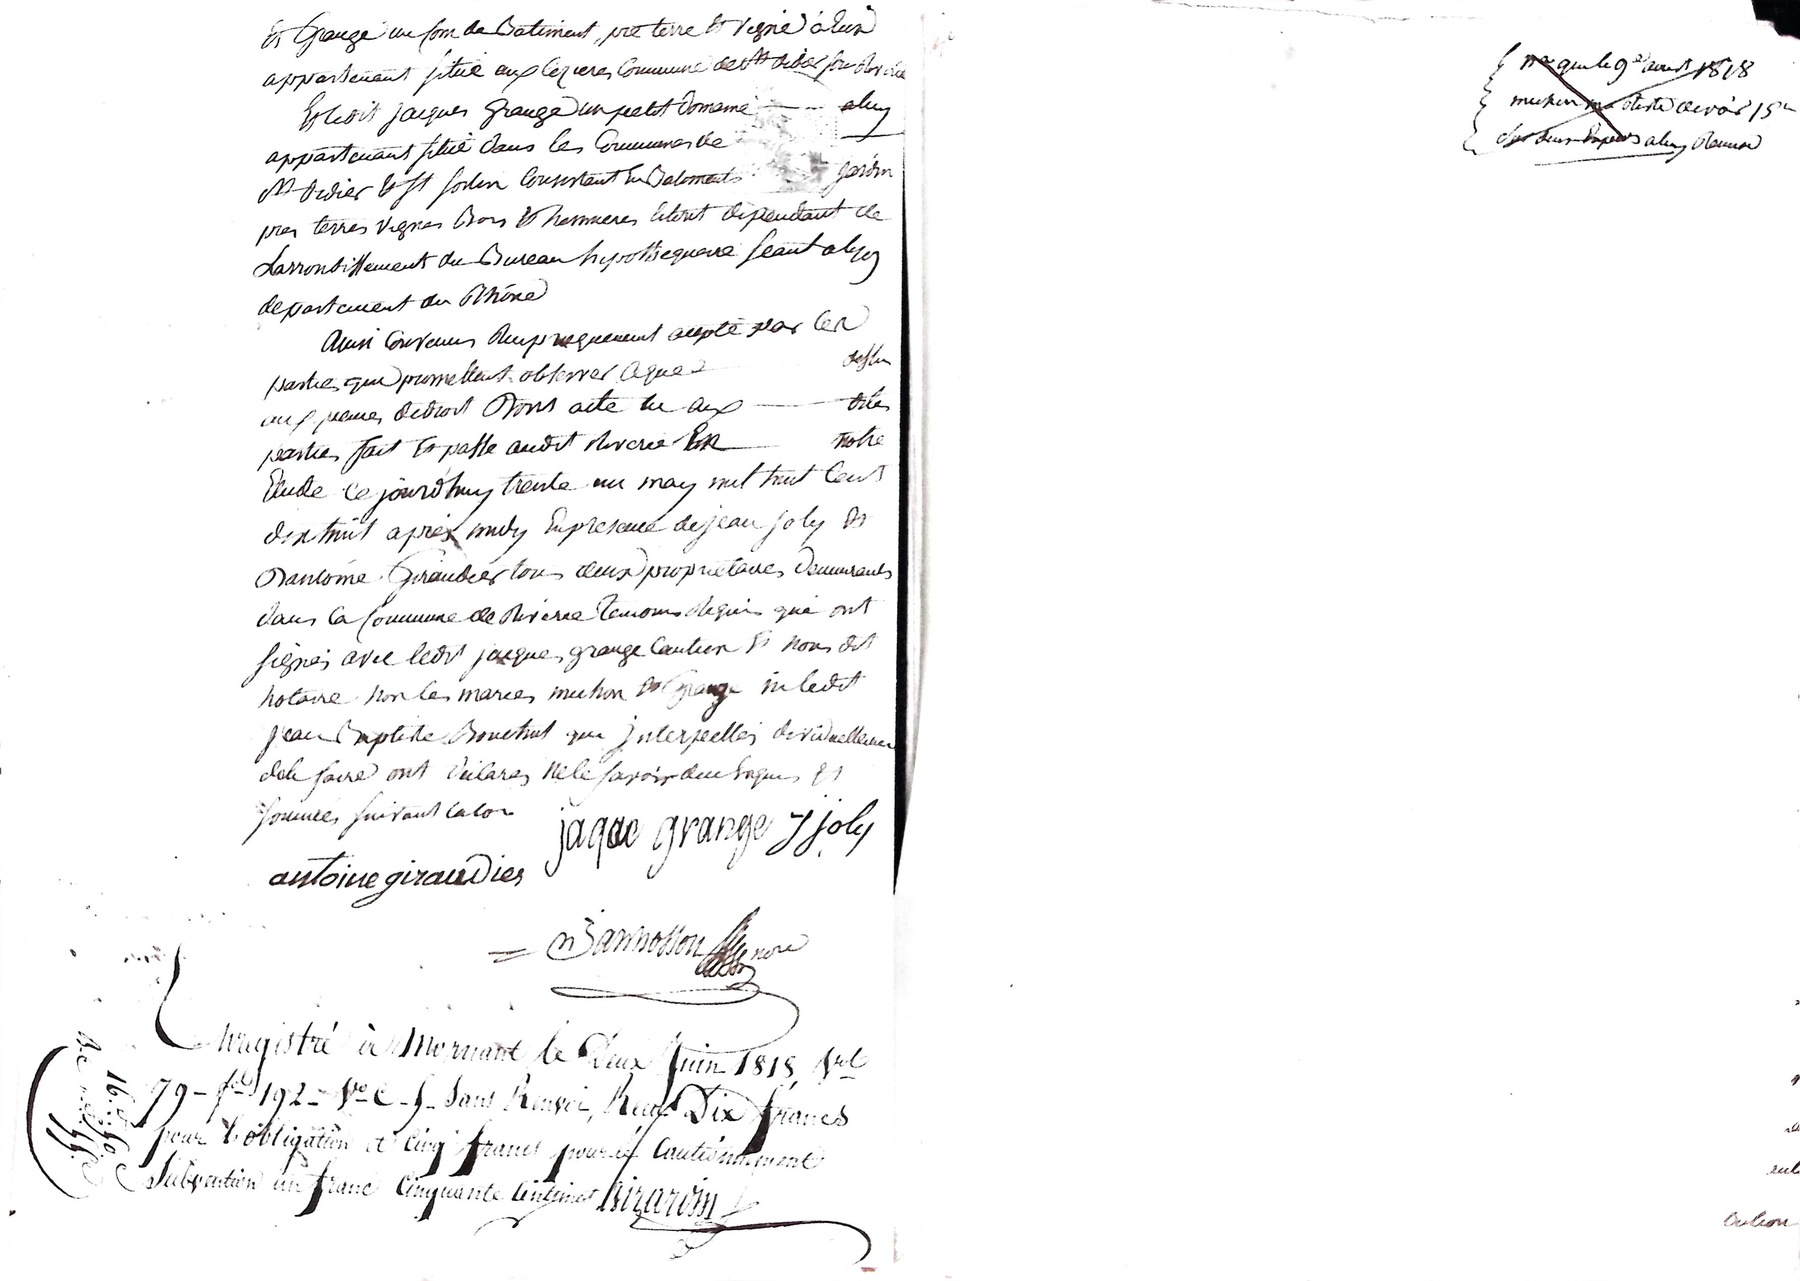 et Grange un fon de Batiment, pré terre et vigne à eux
appartenant situé aux lezieres Commune de St didier sou Riverie
Et ledit jacques Grange un petit Domaine — aluy
appartenant situé dans les Communes de
St didier et St Sorlin Consistant en Batiments jardin
pres terres vignes Bois et hermieres le tout dependant de
Larrondissement du Bureau hypothequaire seant a lyon
departement du Rhône
Ainsi Convenu Reciproquement accepté par les
parties qui promettent observer ce que dessus
aux peines de droit Dont acte lu aux — dites
parties fait et passé audit Riverie En — notre
Etude Ce jourd'huy trente un may mil huit Cent
dix huit après midy En presence de jean joly et
D'antoine Giraudier tous deux propriétaires demeurants
dans la Commune de Riverie Temoins Requis qui ont
signés avec ledit jacques grange Caution et nous dit
notaire non les mariés muhon et Grange ni ledit
jean Baptiste Bouchut qui interpellés
de le faire ont déclarés ne le savoir de ce Enquis et
sommés suivant la loi
jaque grange J joly
antoine giraudier
Bannosson nore
Enregistré à Mornant le Deux Juin 1818, Vol
79 - fo 192 - Vo C. 5. Sans Renvoi, Reçu Dix francs
pour l'obligation et Cinq francs pour le Cautionnement
Subvention un franc Cinquante Centimes Girardin
16. 50
le 9e aout 1818
muhon devoir 15
aluy Remise